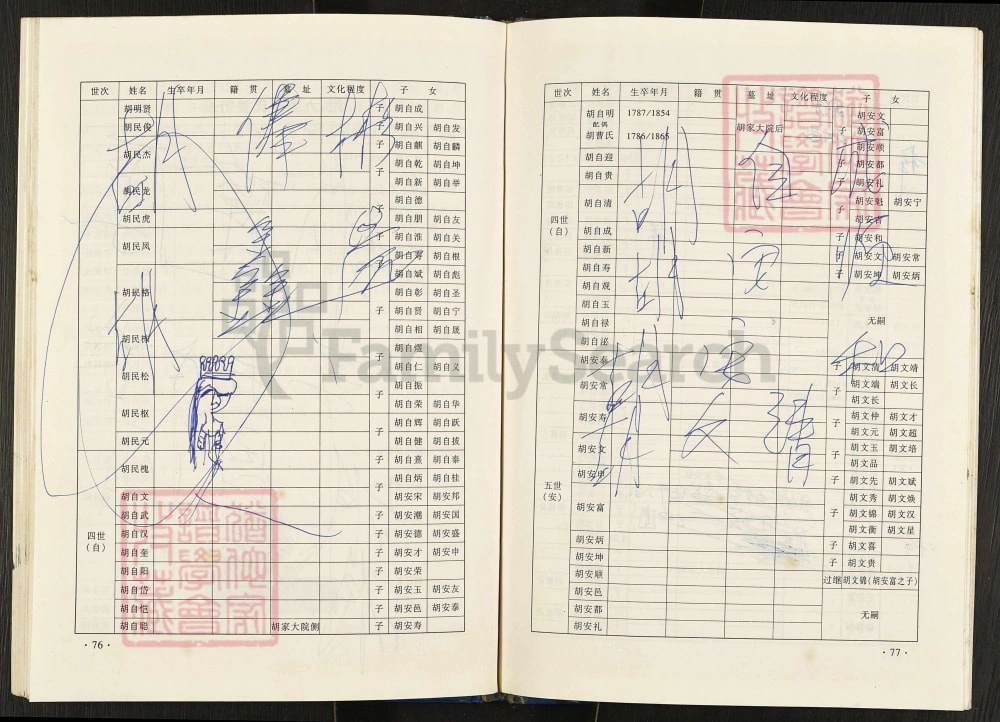 世次 姓名 生卒年月 籍贯 墓址 文化程度 子女
胡明贤 子 胡自成
胡民俊 子 胡自兴 胡自发
胡民杰 子 胡自麒 胡自麟
子 胡自乾 胡自坤
胡民龙 胡自新 胡自举
胡自德
胡民虎 子 胡自朋 胡自友
胡民凤 子 胡自淮 胡自关
子 胡自寿 胡自根
胡自斌 胡自彪
胡民格 胡自彰 胡自圣
子 胡自贤 胡自宁
胡自相 胡自晟
胡自煜
子 胡自仁 胡自义
胡民松 胡自振
子 胡自荣 胡自华
胡民枢 胡自辉 胡自跃
子 胡自健 胡自拔
胡民元
子 胡自熹 胡自泰
胡民槐 子 胡自炳 胡自桂
四世（自）
胡自文 胡安宋 胡安邦
胡自武 子 胡安潮 胡安国
胡自汉 子 胡安德 胡安盛
胡自奎 子 胡安才 胡安申
胡自阳 子 胡安荣
胡自岱 子 胡安玉 胡安友
胡自恺 子 胡安邑 胡安泰
胡自聪 胡家大院侧 子 胡安寿
·76·
世次 姓名 生卒年月 籍贯 墓址 文化程度 子女
四世（自）
胡自明 1787/1854 胡安文
配偶
胡曹氏 1786/1865 胡家大院后 子 胡安富
胡安顺
胡自迎 子 胡安都
胡自贵 子 胡安礼
胡自清 胡安魁 胡安宁
子 胡安吉
胡自成 胡安和
胡自新 子 胡安文 胡安常
胡自寿 子 胡安坤 胡安炳
胡自观
胡自玉
胡自禄 无嗣
胡自泌
五世（安）
胡安泰 子 胡文清 胡文靖
胡安常 子 胡文端 胡文长
胡文长
胡安寿 子 胡文仲 胡文才
胡文元 胡文超
胡安文 子 胡文玉 胡文培
胡文品
胡安申 子 胡文先 胡文斌
胡安富 胡文秀 胡文焕
子 胡文锦 胡文汉
胡文衡 胡文星
胡安炳 子 胡文喜
胡安坤 子 胡文贵
胡安顺 过继 胡文锦（胡安富之子）
胡安邑
胡安都 无嗣
胡安礼
·77·
FamilySearch